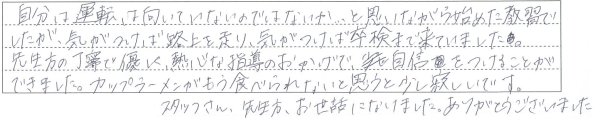 自分は運転は向いていないのではないか…と思いながら始めた教習で
したが、気がつけば路上を走り、気がつけば卒検まで来ていました。
先生方の丁寧で優しく、熱心な指導のおかげで、自信をつけることが
できました。カップラーメンがもう食べられないと思うと少し寂しいです。
スタッフさん、先生方、お世話になりました。ありがとうございました